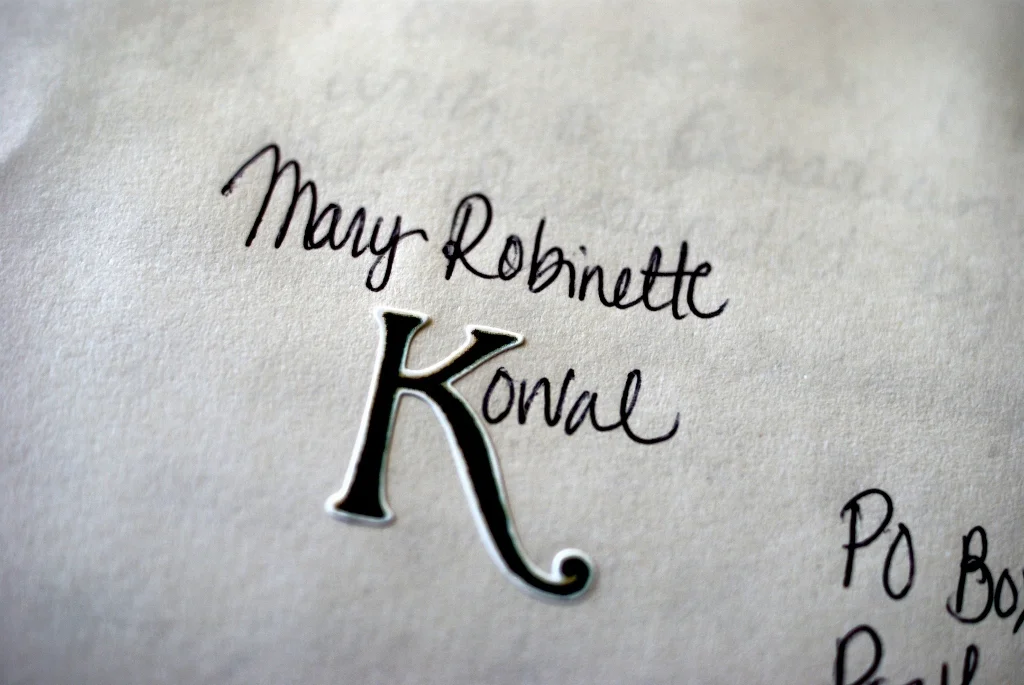 Mary Robinette
Kowal
PO Box